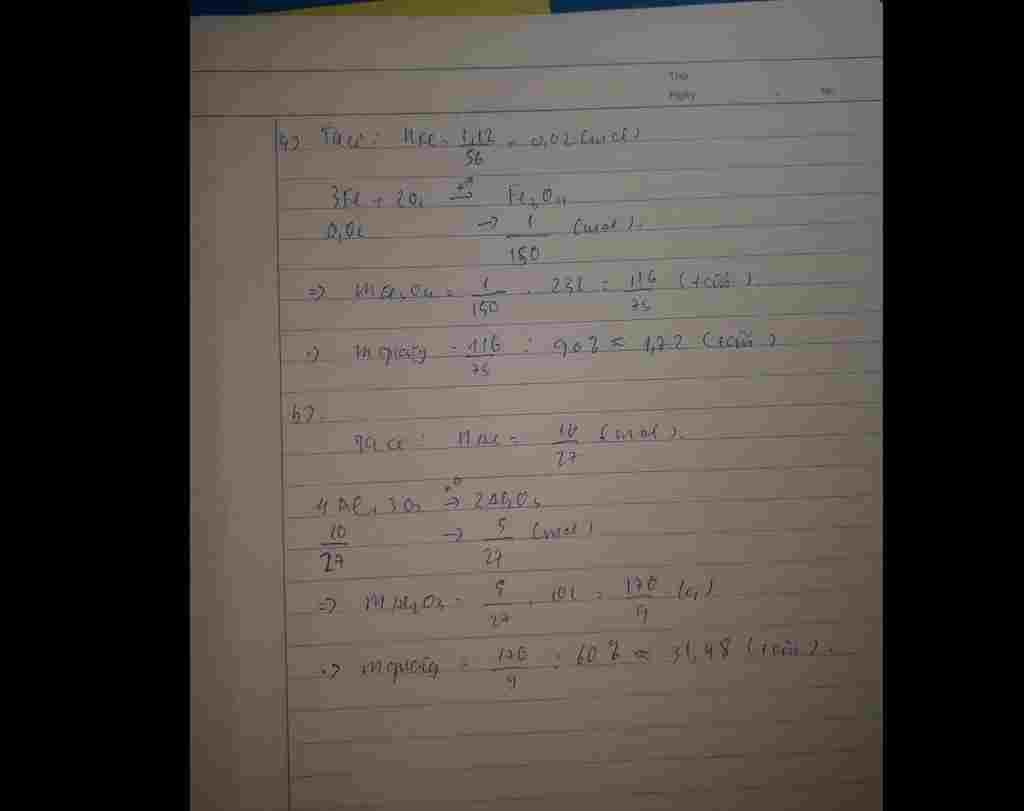 Thứ
Ngày No.
a) Ta có: nFe = 1,12/56 = 0,02 (mol)
3Fe + 2O₂ t°→ Fe₃O₄
0,02 → 1/150 (mol).
=> mFe₃O₄ = 1/150 . 232 = 116/75 (tấn)
=> mquặng = 116/75 : 90% ≈ 1,72 (tấn)
b).
Ta có: nAl = 10/27 (mol).
4Al + 3O₂ t°→ 2Al₂O₃
10/27 → 5/27 (mol)
=> mAl₂O₃ = 5/27 . 102 = 170/9 (g)
=> mquặng = 170/9 : 60% ≈ 31,48 (tấn).